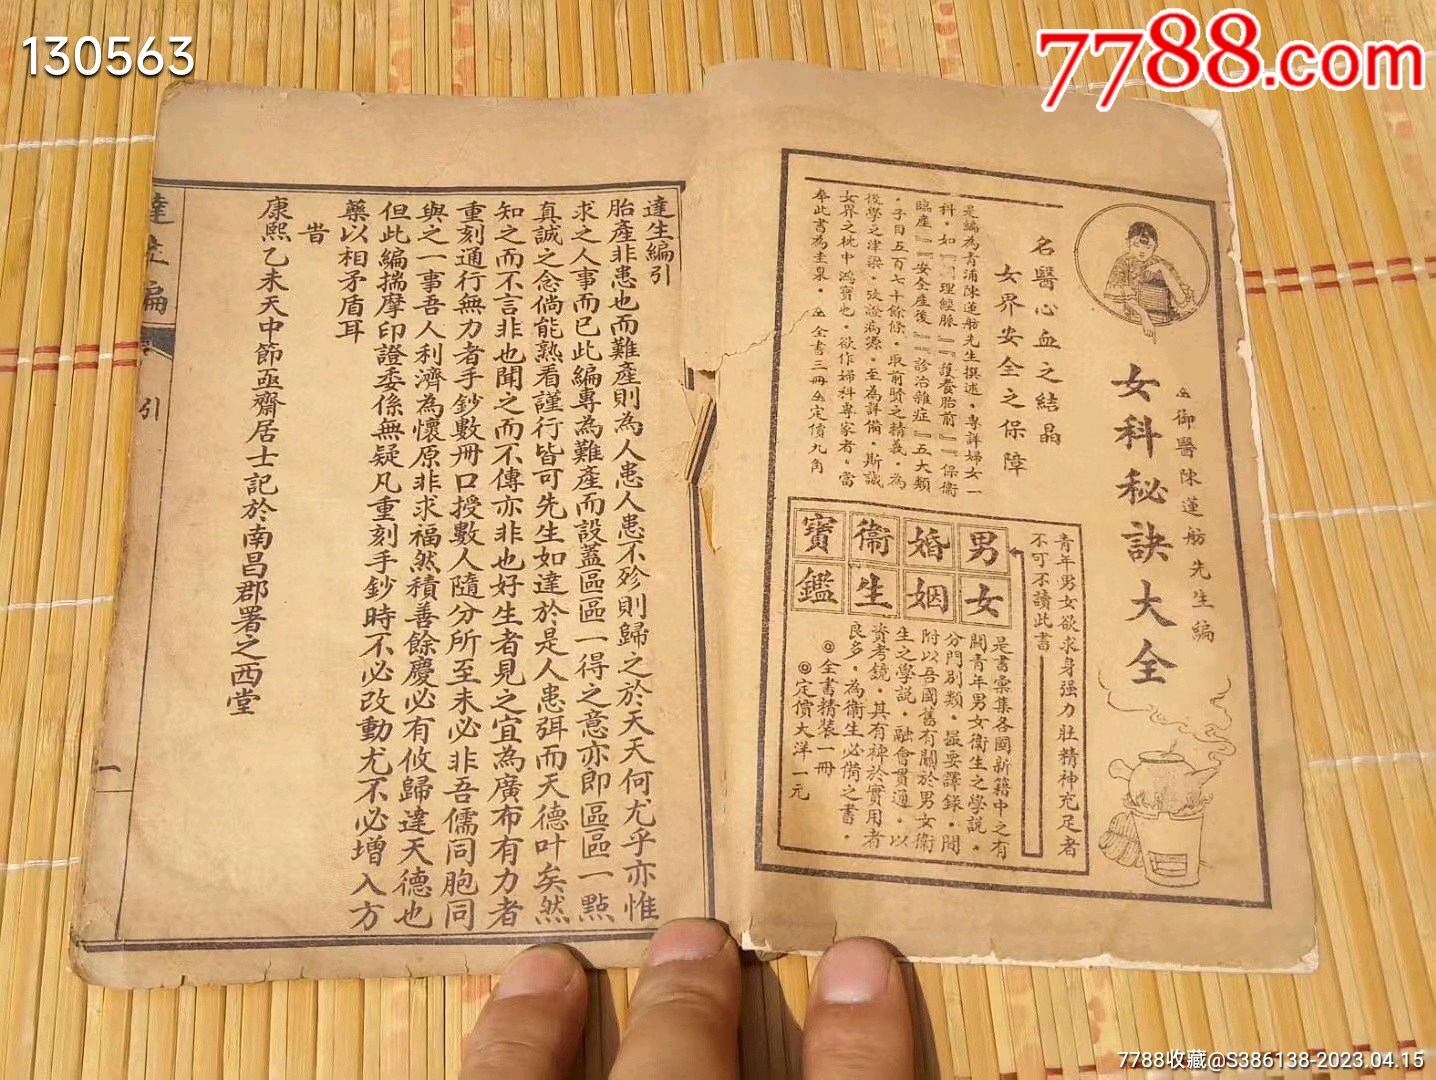 130563
7788.com
御醫陳蓮舫先生編
女科秘訣大全
名醫心血之結晶
女界安全之保障
是編為青浦陳蓮舫先生撰述·專詳婦女一
科·如『調理經脈』『護養胎前』『保衞
臨產』『安全產後』『診治雜症』五大類
·子目五百七十餘條·取前賢之精義·為
後學之津梁·攷證病源·至為詳備·斯誠
女界之枕中鴻寶也·欲作婦科專家者·當
奉此書為圭臬·全書三冊定價九角
青年男女欲求身强力壯精神充足者
不可不讀此書
男女
婚姻
衞生
寶鑑
是書彙集各國新籍中之有
關青年男女衞生之學說·
分門別類·最要譯錄·間
附以吾國舊有關於男女衞
生之學說·融會貫通·以
資考鏡·其有裨於實用者
良多·為衞生必備之書·
◎全書精裝一冊
◎定價大洋一元
達生編引
胎產非患也而難產則為人患人患不殄則歸之於天天何尤乎亦惟
求之人事而已此編專為難產而設蓋區區一得之意亦即區區一點
真誠之念倘能熟看謹行皆可先生如達於是人患弭而天德叶矣然
知之而不言非也聞之而不傳亦非也好生者見之宜為廣布有力者
重刻通行無力者手鈔數冊口授數人隨分所至未必非吾儒同胞同
與之一事吾人利濟為懷原非求福然積善餘慶必有攸歸達天德也
但此編揣摩印證委係無疑凡重刻手鈔時不必改動尤不必增入方
藥以相矛盾耳
旹
康熙乙未天中節亟齋居士記於南昌郡署之西堂
達生編
引
一
7788收藏@S386138-2023.04.15